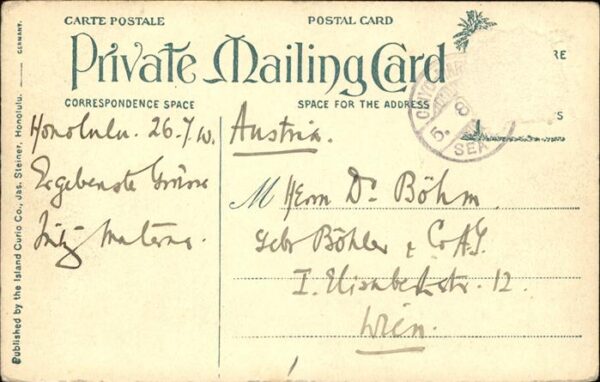 CARTE POSTALE
POSTAL CARD
Private Mailing Card
CORRESPONDENCE SPACE
SPACE FOR THE ADDRESS
Honolulu. 26.7.10.
Ergebenste Grüsse
Fritz Materna.
Austria.
M Herrn Dr. Böhm.
Gebr Böhler & Co A.G.
I. Elisabethstr. 12.
Wien.
SEA
RE
Published by the Island Curio Co., Jas. Steiner, Honolulu.
GERMANY.